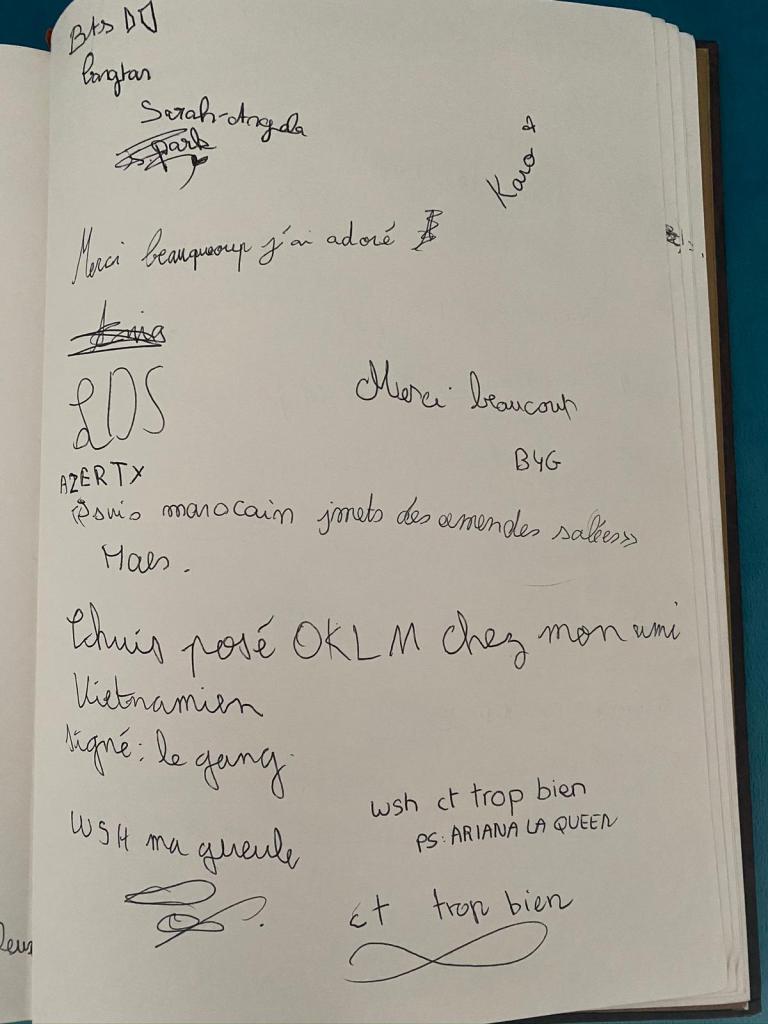 Bts
Sarah-Angela
park
Karo
Merci beauqueoup j'ai adoré
LDS
Merci beaucoup
B4G
AZERTX
marocain jmets des amendes salées»
Maes.
Chuis posé OKLM chez mon ami
Vietnamien
signé: le gang.
wsh ct trop bien
PS: ARIANA LA QUEEN
WSH ma gueule
ct trop bien